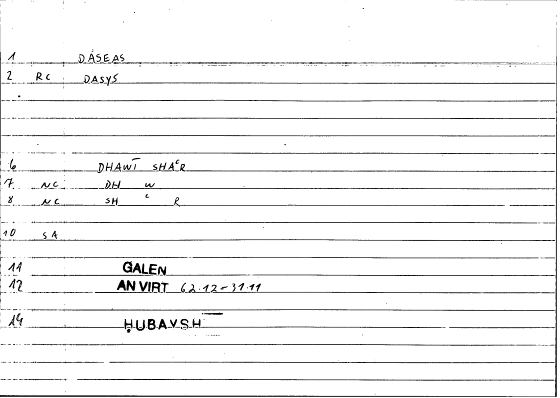 1 DASEAS
2 RC DASYS
6 DHAWĪ SHAʿR
7 NC DH W
8 NC SH ʿ R
10 SA
11 GALEN
12 AN VIRT 62.12-31.11
14 ḤUBAYSH